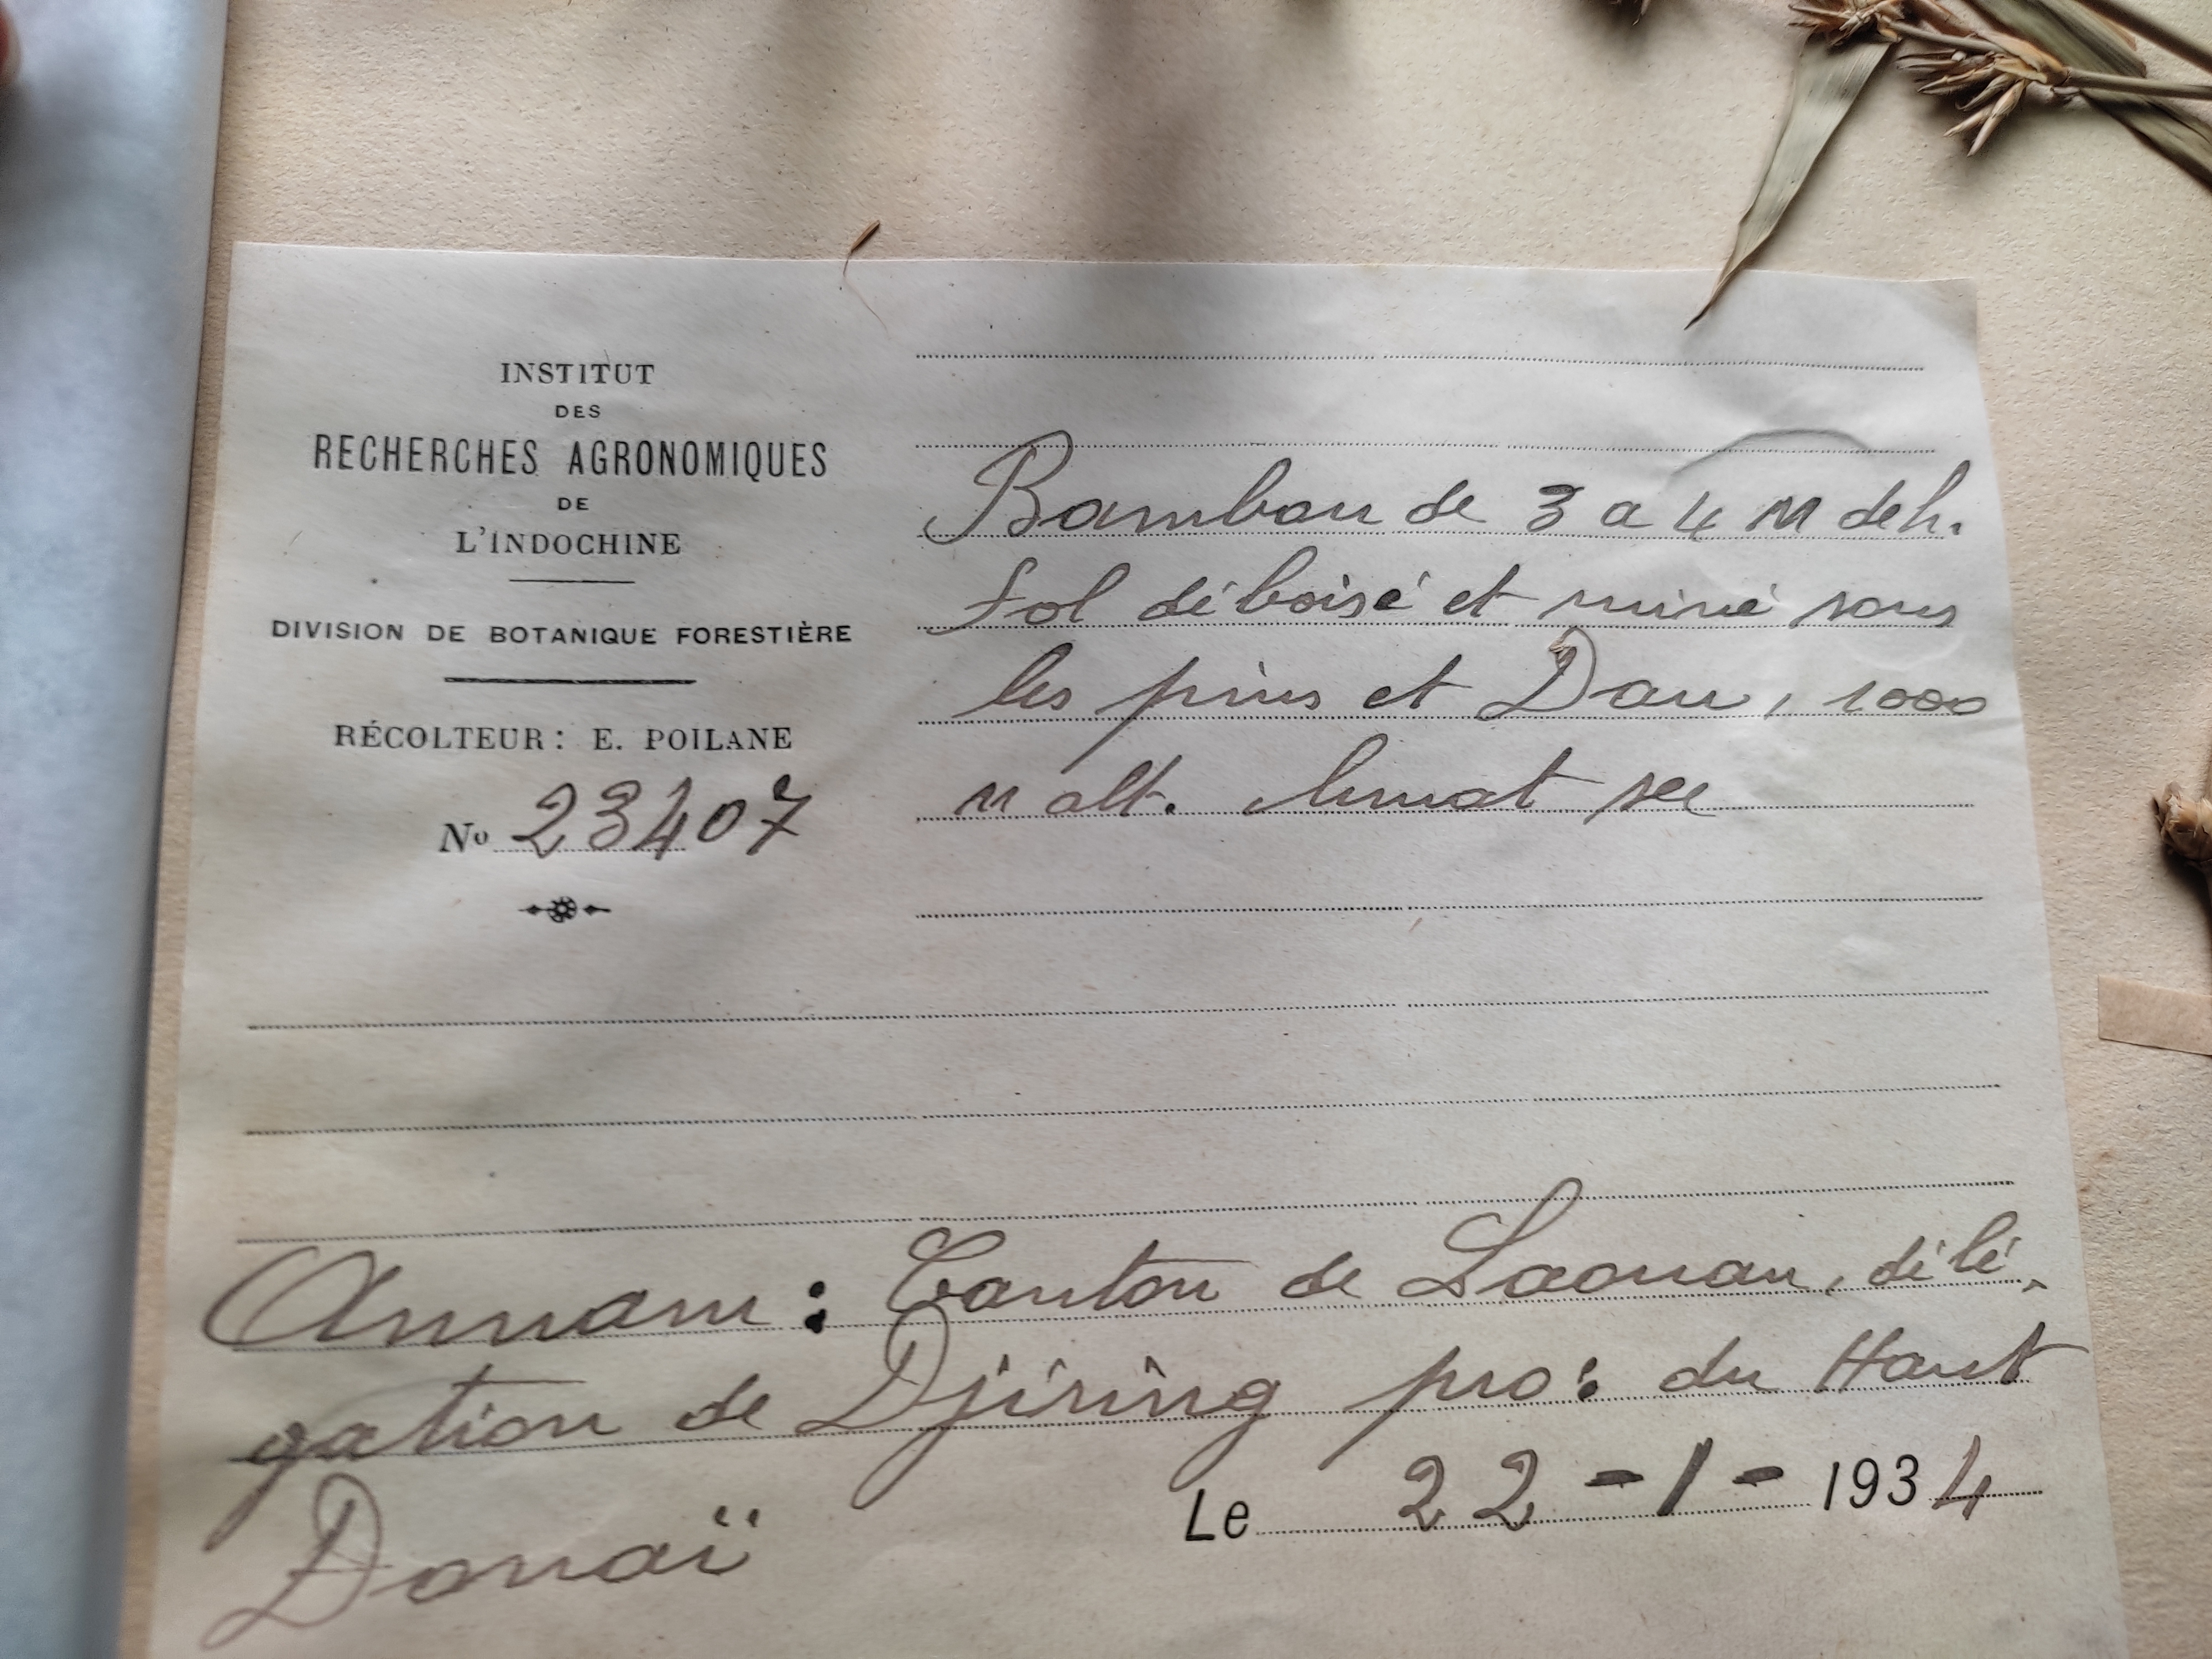 INSTITUT
DES
RECHERCHES AGRONOMIQUES
DE
L'INDOCHINE
DIVISION DE BOTANIQUE FORESTIÈRE
RÉCOLTEUR: E. POILANE
No 23407
Bambou de 3 a 4 M de h.
Sol déboisé et miné sous
les pins et Dau, 1000
m alt. climat sec
Annam: Canton de Laouan, délé-
gation de Djiring pro: du Haut
Donaï
Le 22-1-1934